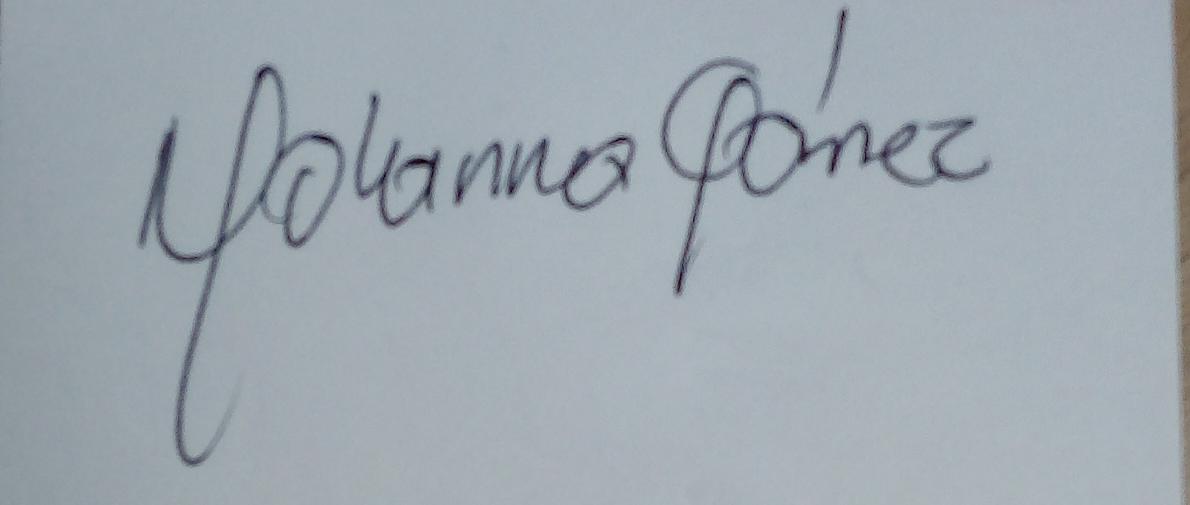 Yohanna Gómez